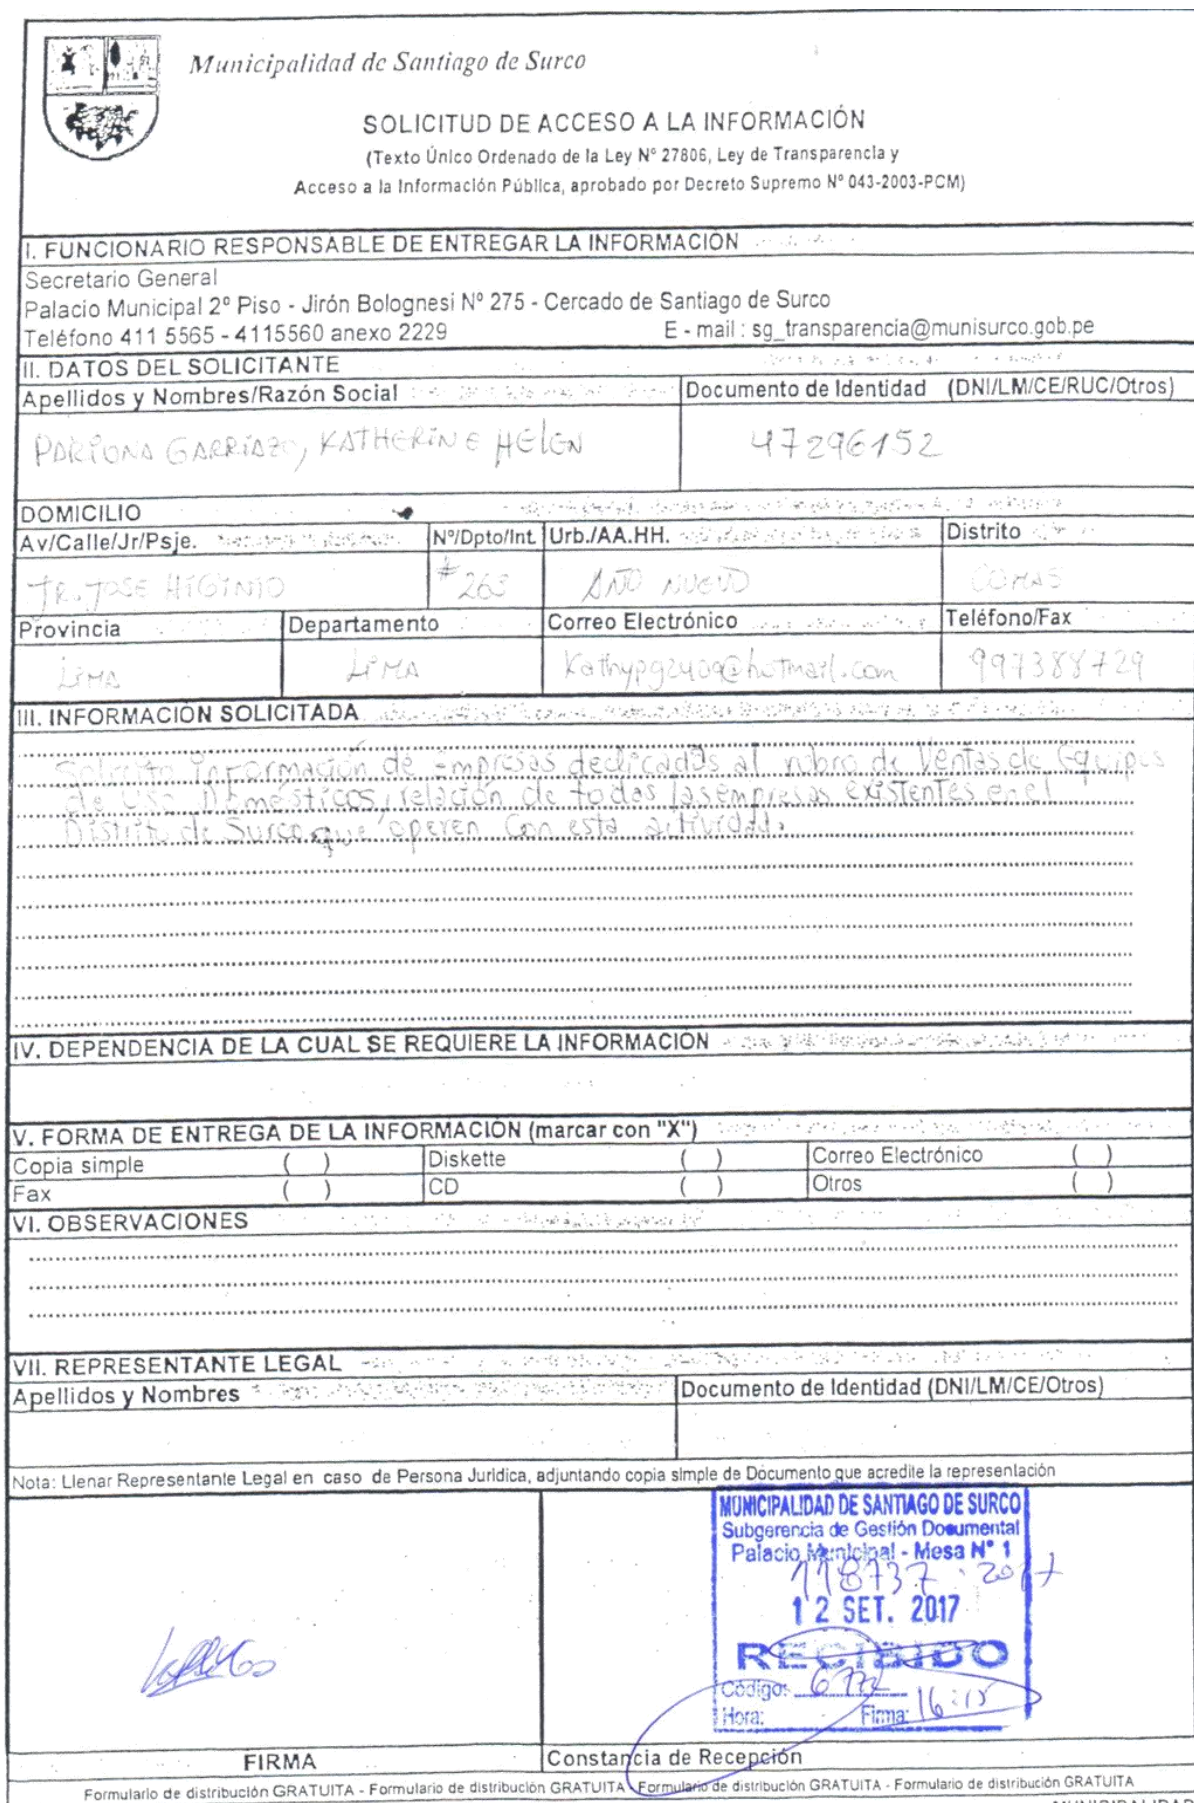 Municipalidad de Santiago de Surco
SOLICITUD DE ACCESO A LA INFORMACIÓN
(Texto Único Ordenado de la Ley Nº 27806, Ley de Transparencia y
Acceso a la Información Pública, aprobado por Decreto Supremo Nº 043-2003-PCM)
I. FUNCIONARIO RESPONSABLE DE ENTREGAR LA INFORMACIÓN
Secretario General
Palacio Municipal 2º Piso - Jirón Bolognesi Nº 275 - Cercado de Santiago de Surco
Teléfono 411 5565 - 4115560 anexo 2229 E - mail : sg_transparencia@munisurco.gob.pe
II. DATOS DEL SOLICITANTE
Apellidos y Nombres/Razón Social Documento de Identidad (DNI/LM/CE/RUC/Otros)
PARIONA GARRIAZO, KATHERINE HELEN 47296152
DOMICILIO
Av/Calle/Jr/Psje. Nº/Dpto/Int. Urb./AA.HH. Distrito
JR. JOSE HIGINIO # 263 AÑO NUEVO COMAS
Provincia Departamento Correo Electrónico Teléfono/Fax
LIMA LIMA Kathypg2409@hotmail.com 997388729
III. INFORMACIÓN SOLICITADA
Solicito Información de Empresas dedicadas al rubro de Ventas de Equipos
de Uso Domésticos, relación de todas las empresas existentes en el
Distrito de Surco que operen con esta actividad.
IV. DEPENDENCIA DE LA CUAL SE REQUIERE LA INFORMACIÓN
V. FORMA DE ENTREGA DE LA INFORMACIÓN (marcar con "X")
Copia simple ( ) Diskette ( ) Correo Electrónico ( )
Fax ( ) CD ( ) Otros ( )
VI. OBSERVACIONES
VII. REPRESENTANTE LEGAL
Apellidos y Nombres Documento de Identidad (DNI/LM/CE/Otros)
Nota: Llenar Representante Legal en caso de Persona Jurídica, adjuntando copia simple de Documento que acredite la representación
MUNICIPALIDAD DE SANTIAGO DE SURCO
Subgerencia de Gestión Documental
Palacio Municipal - Mesa Nº 1
118737 - 2017
12 SET. 2017
RECIBIDO
Código:
Hora: Firma: 16:15
FIRMA Constancia de Recepción
Formulario de distribución GRATUITA - Formulario de distribución GRATUITA - Formulario de distribución GRATUITA - Formulario de distribución GRATUITA
MUNICIPALIDAD